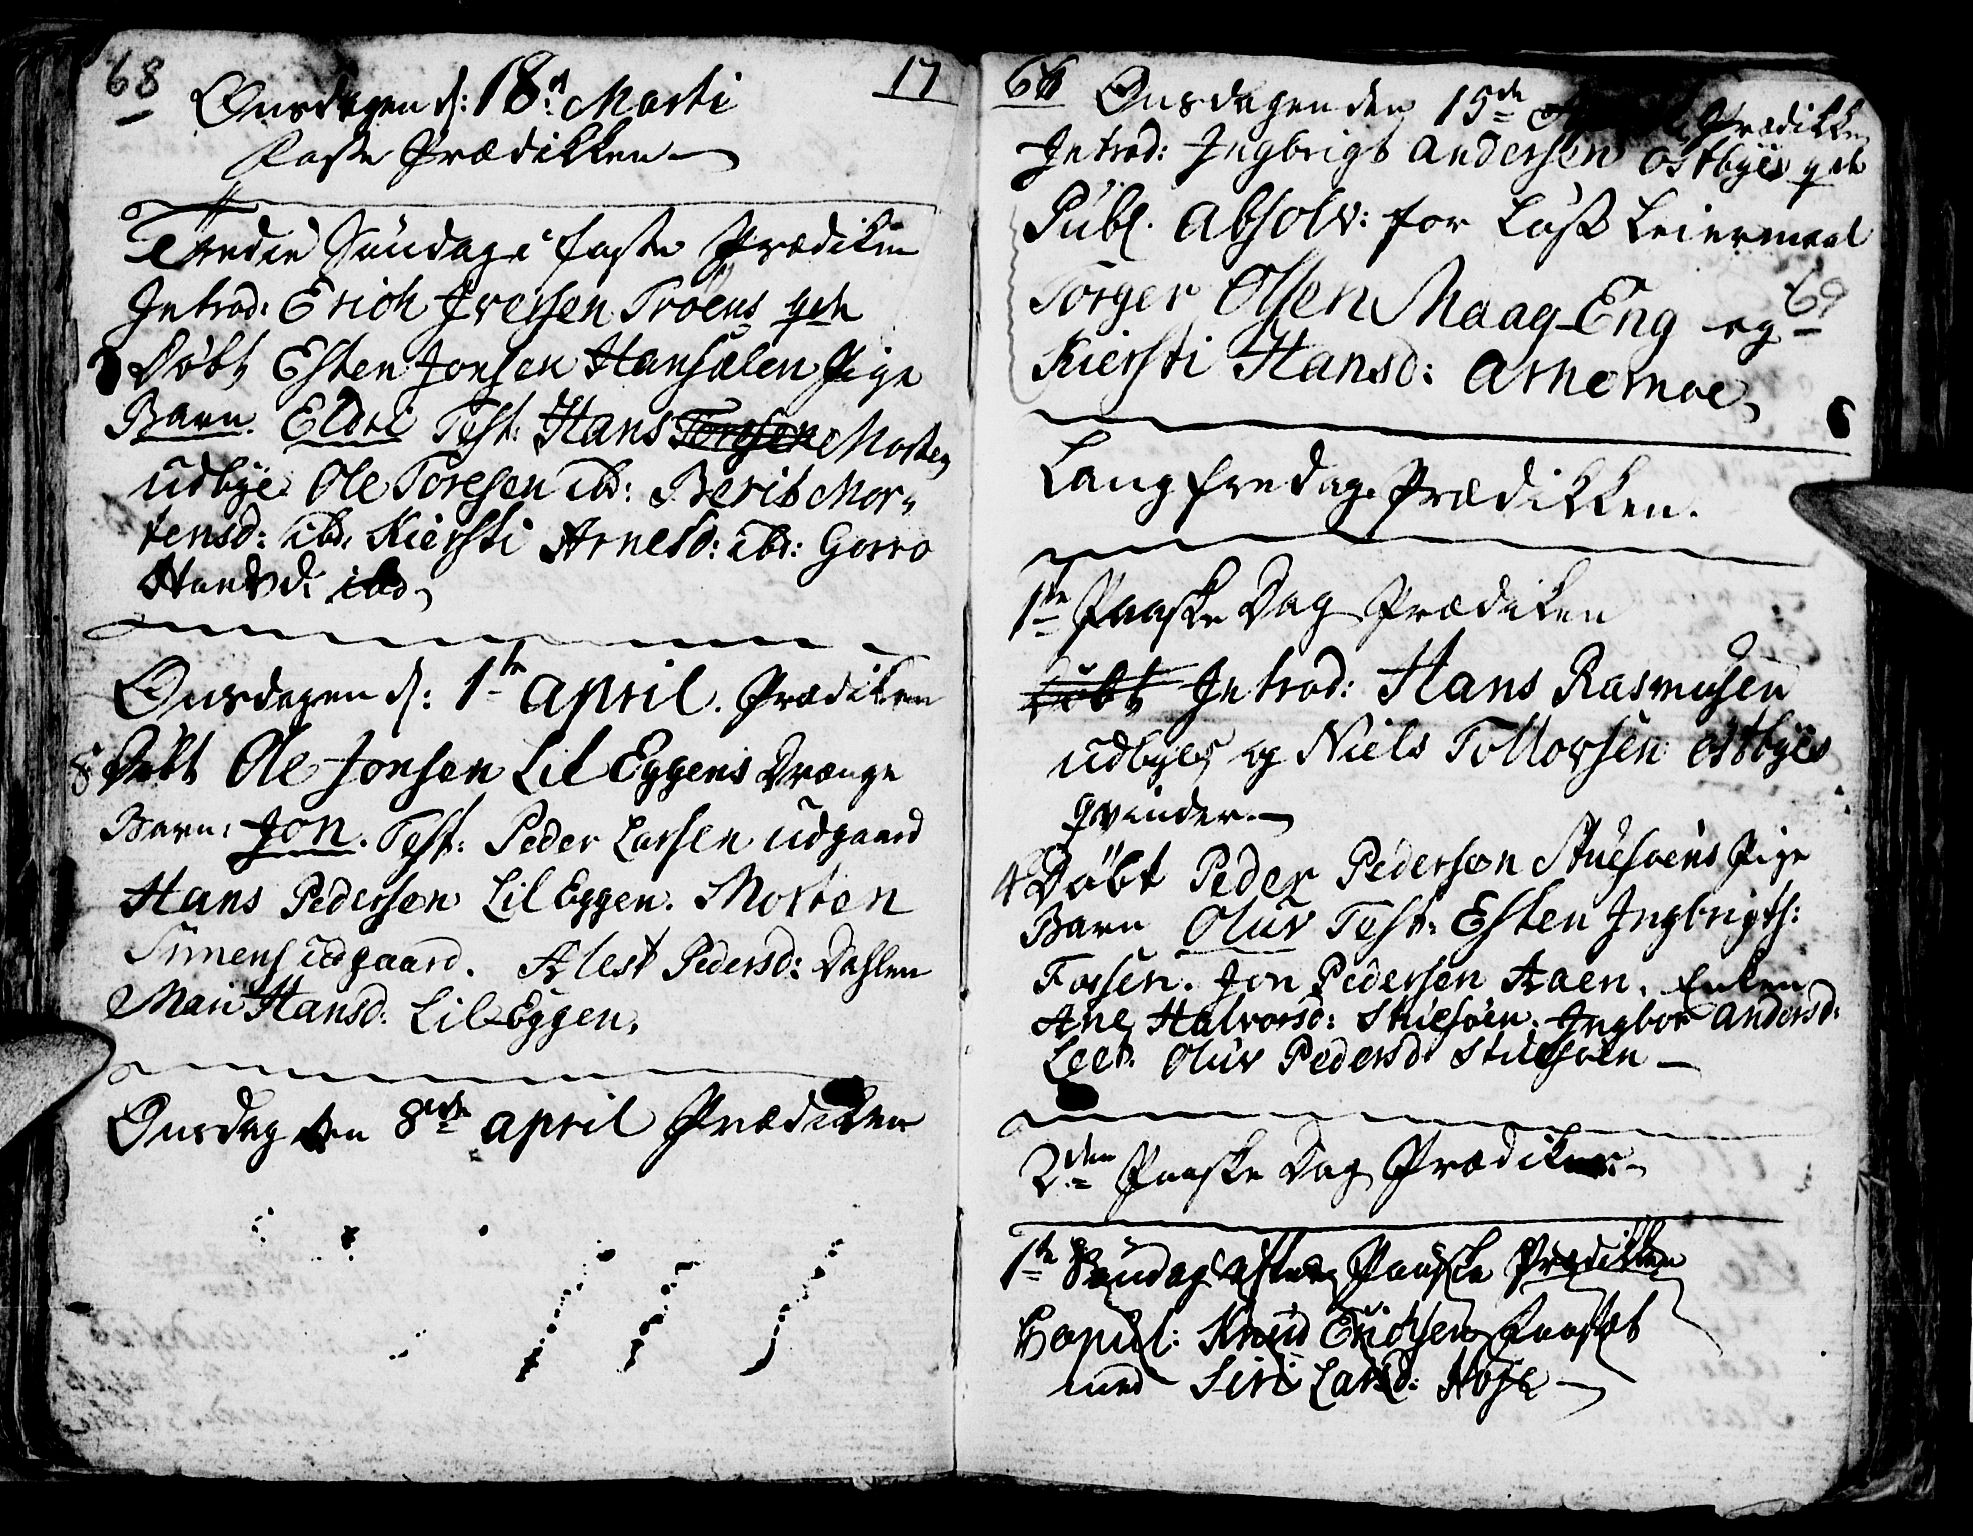 68
17
Onsdagen d: 18d Marti
Faste Prædikken
Tredie Søndag i faste Prædiken
Introd: Erich Iversen Trøens qde
Døbt Esten Jonsen Hansalen Pige
Barn. Eldri Test: Hans Toresen Morten
udbye Ole Toresen ibd: Berit Mor-
tensd: ibd. Kiersti Arnesd: ibd: Gorro
Hansd: ibd
Onsdagen d: 1te april. Prædiken
8 Døbt Ole Jonsen Lil Eggens Drænge
Barn: Jon. Test: Peder Larsen udgaard
Hans Pedersen Lil Eggen. Morten
Simens udgaard. Alest Pedersd: Dahlen
Mari Hansd: Lil-Eggen.
Onsdag den 8de april Prædiken
Onsdagen den 15de Prædikken
Introd: Ingbrigt andersen østbyes qde
Publ. absolv: for Løst Leiermaal
69
Torger Olsen Maag-Eng og
Kiersti Hansd: Arnemoe
Langfredag Prædikken.
1te Paaske Dag Prædiken
Døbt Introd: Hans Rasmusen
udbyes og Niels Tollovsen østbyes
qvinder.
4 Døbt Peder Pedersen Stuesøens Pige
Barn Oluv Test: Esten Ingbrigts:
Fossen. Jon Pedersen Aaen. Enken
Ane Halvorsd: Stuesøen. Ingbor andersd:
Leer. Oluv Pedersd: Stuesøen
2den Paaske Dag Prædiken
1te Søndag efter Paaske Prædikken
Copul: Knud Erichsen Faasæt
med Siri Larsd: Høye